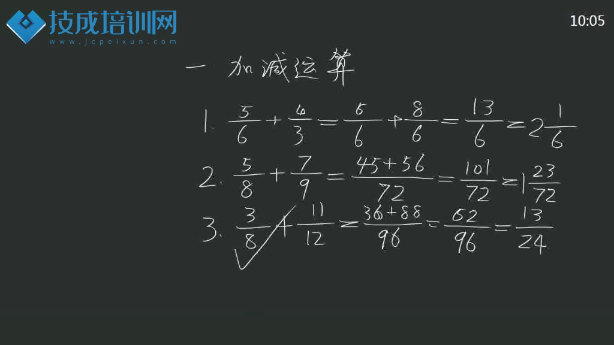 技成培训网
www.jcpeixun.com
10:05
一 加减运算
1. 5/6 + 4/3 = 5/6 + 8/6 = 13/6 = 2 1/6
2. 5/8 + 7/9 = (45+56)/72 = 101/72 = 1 23/72
3. 3/8 + 11/12 = (36+88)/96 = 52/96 = 13/24